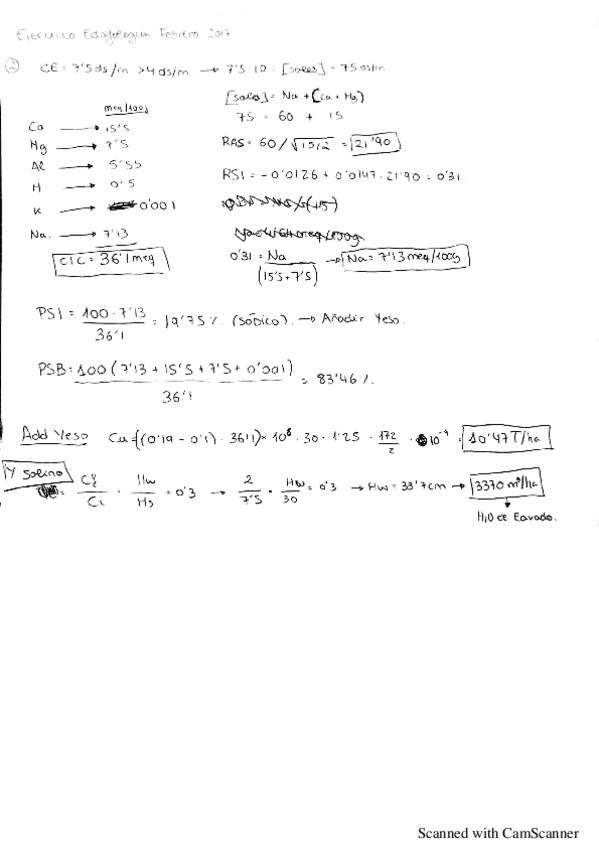 Ejercicio Edafología Febrero 2017
② CE = 7'5 ds/m > 4 ds/m → 7'5 · 10 = [sales] = 75
meq/100g
Ca → 15'5
Mg → 7'5
Al → 5'55
H → 0'5
K → 0'001
Na → 7'13
CIC = 36'1 meq
[sales] = Na + (Ca + Mg)
75 = 60 + 15
RAS = 60 / √15/2 = 21'90
RSI = -0'0126 + 0'0147 · 21'90 = 0'31
0'31 = Na / (15'5 + 7'5) → Na = 7'13 meq/100g
PSI = 100 · 7'13 / 36'1 = 19'75 %. (SÓDICO). → Añadir Yeso.
PSB = 100 (7'13 + 15'5 + 7'5 + 0'001) / 36'1 = 83'46 %.
Add Yeso Ca = ((0'19 - 0'1) · 36'1) · 10⁸ · 30 · 1'25 · 172/2 · 10⁻⁹ = 10'47 T/ha
Y salino
= Cf/Ci · Hw/Hs = 0'3 → 2/7'5 · Hw/30 = 0'3 → Hw = 33'7 cm → 3370 m³/ha
H₂O de Lavado.
Scanned with CamScanner